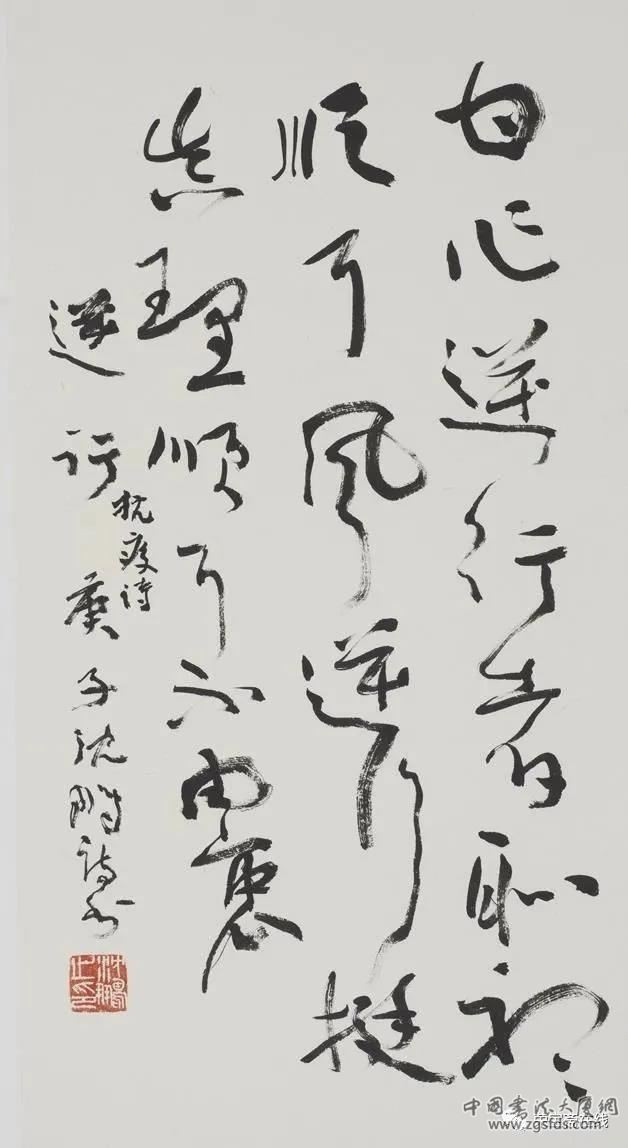 甘作逆行者耻於
順耳風逆行挺
真理順耳不由衷
逆行
抗疫詩
庚子沈鵬詩書
沈鵬之印
中國書法大廈網
www.zgsfds.com